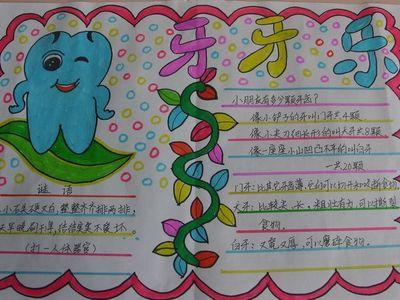 牙牙乐
谜语
小石头硬又白,整整齐齐排两排,
天早晚刷干净,结结实实不坏。
(打一人体器官)
小朋友有多少颗牙齿?
像小铲子的牙叫门牙共4颗
像小尖刀的长形的叫犬牙共8颗
像一座座小山凹凸不平的叫臼牙
一共20颗
门牙:比其它牙齿薄,它们可以切开和咬断食物
犬牙:比较尖、长,粗壮有力,可以撕裂
食物。
臼牙:又宽又厚,可以磨碎食物。